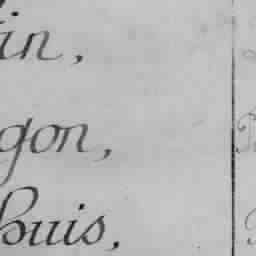 in,
gon,
huis,